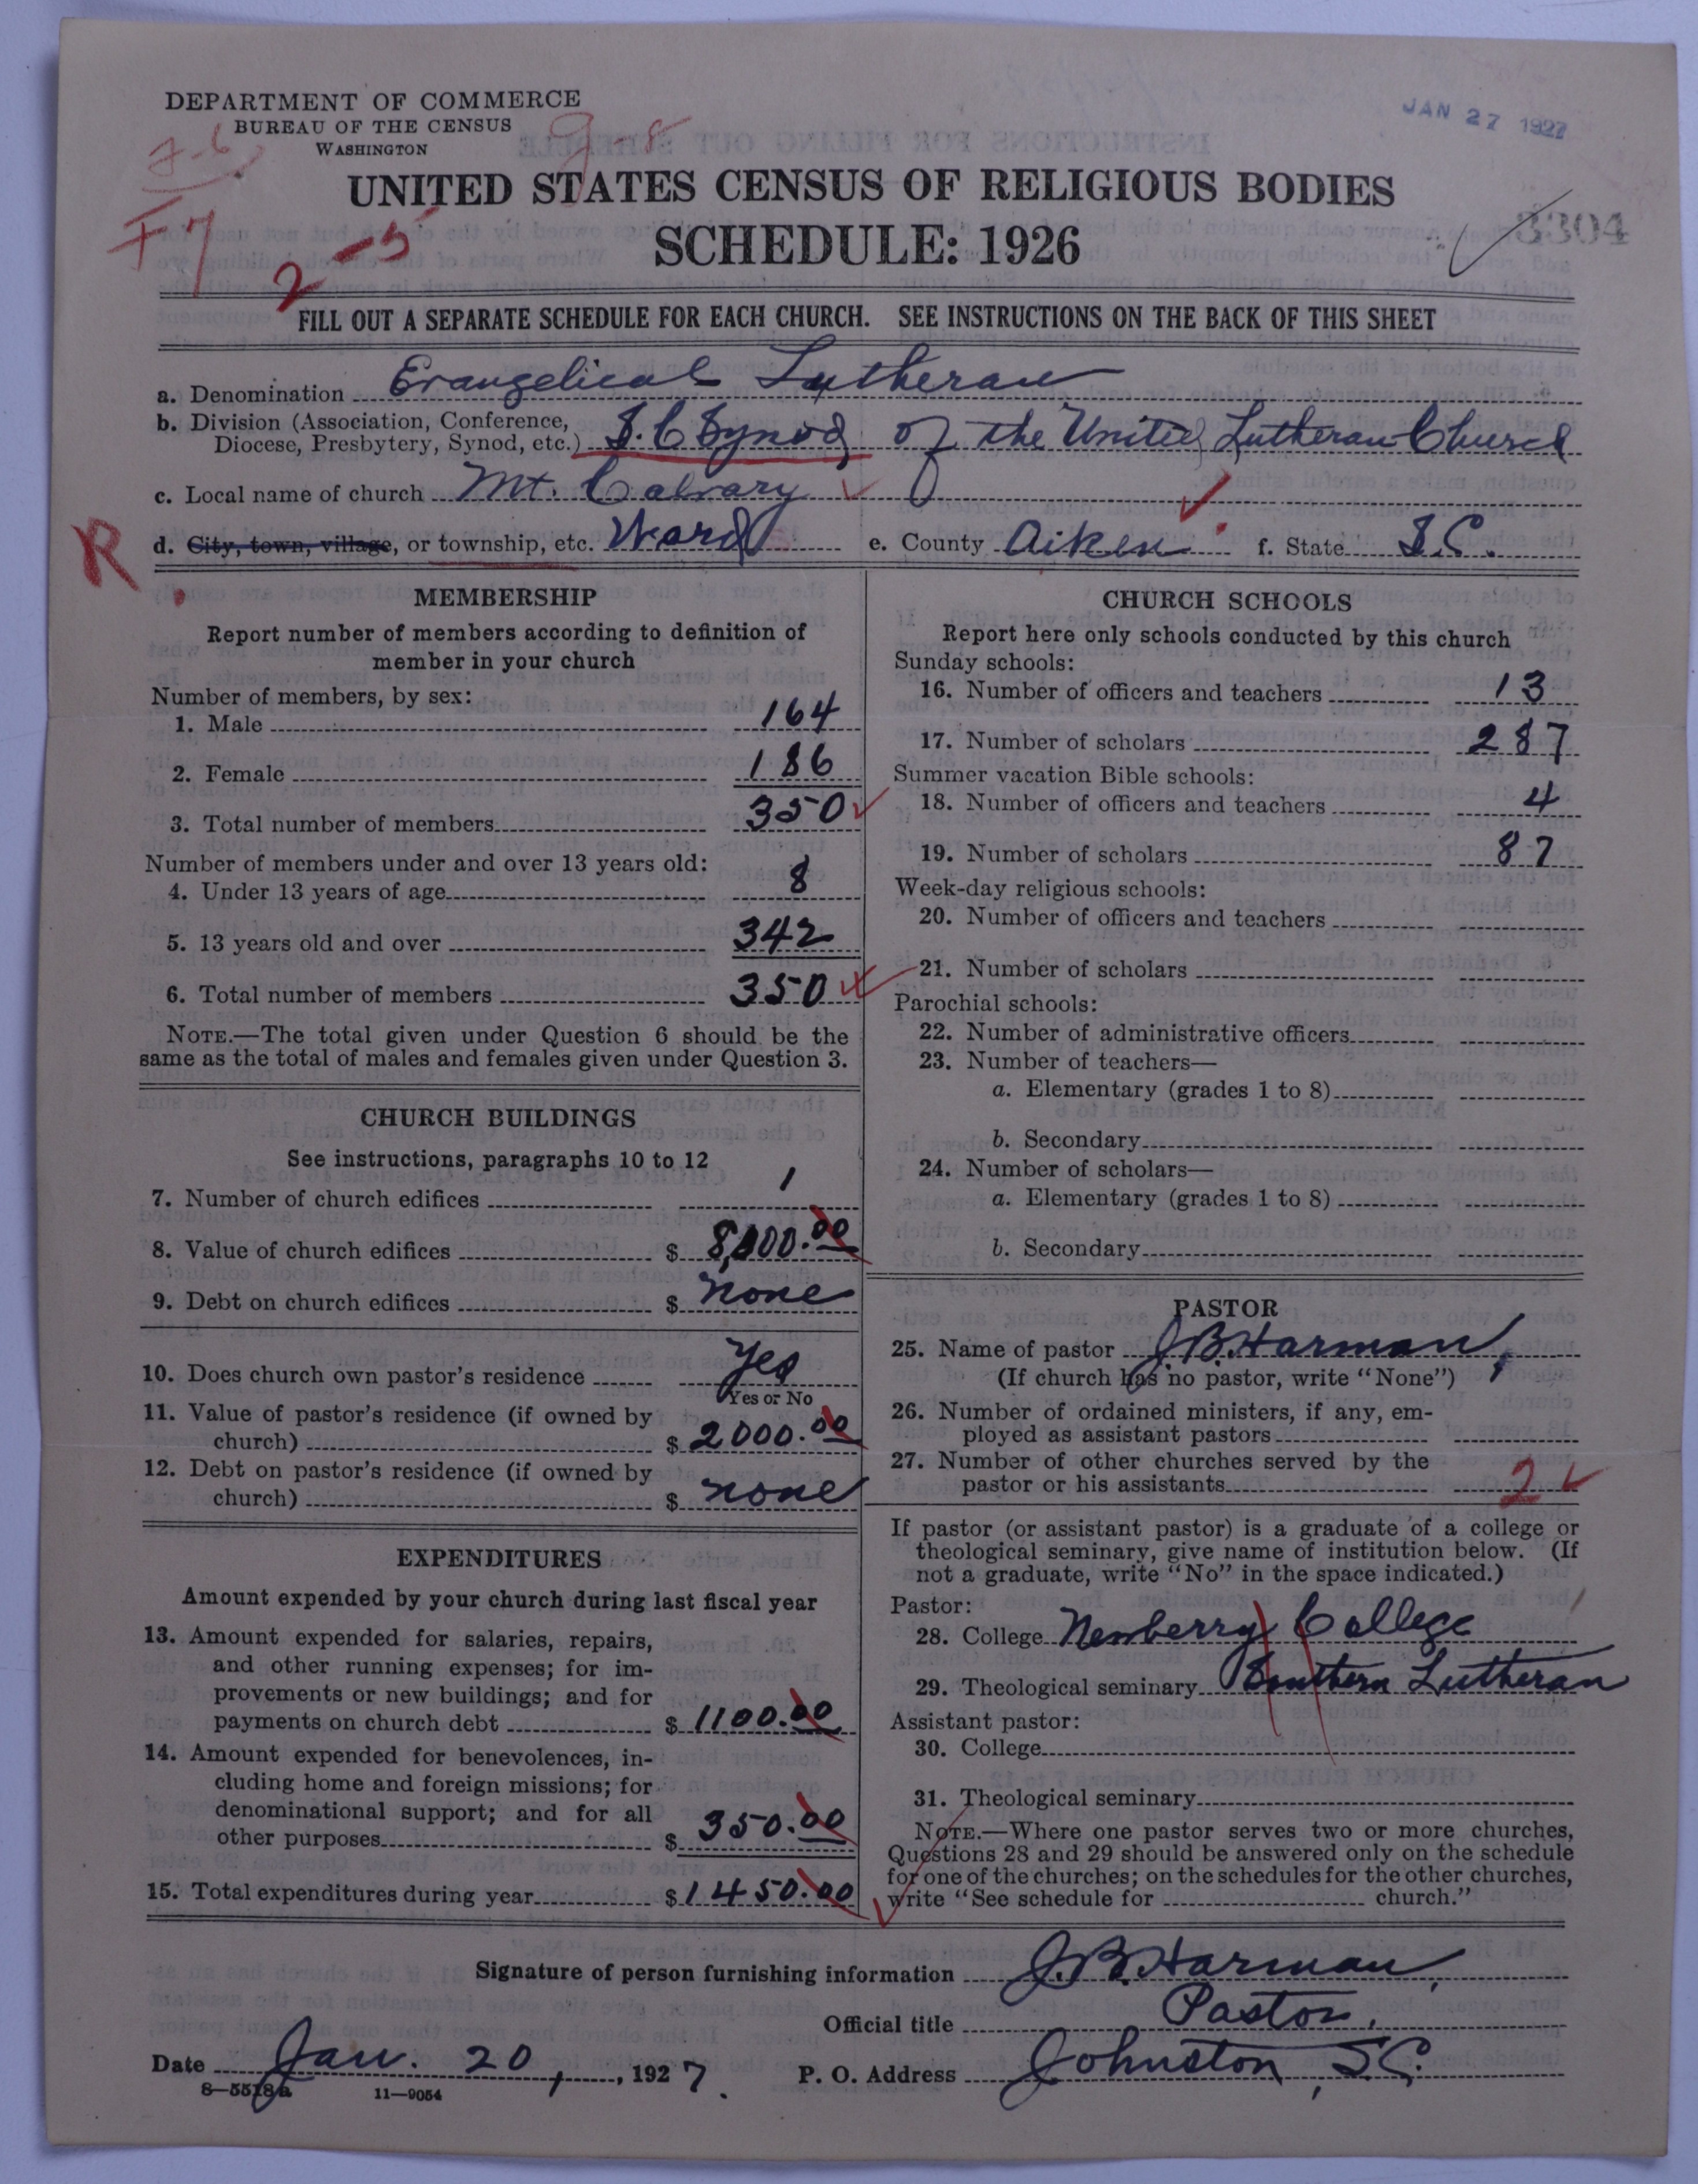 DEPARTMENT OF COMMERCE
BUREAU OF THE CENSUS
WASHINGTON
JAN 27 1927
7-6
9-8
F7
2-5
3304
UNITED STATES CENSUS OF RELIGIOUS BODIES
SCHEDULE: 1926
FILL OUT A SEPARATE SCHEDULE FOR EACH CHURCH. SEE INSTRUCTIONS ON THE BACK OF THIS SHEET
a. Denomination Evangelical Lutheran
b. Division (Association, Conference,
Diocese, Presbytery, Synod, etc.) S.C Synod of the United Lutheran Church
c. Local name of church Mt. Calvary
R
d. City, town, village, or township, etc. Ward e. County Aiken f. State S.C.
MEMBERSHIP
Report number of members according to definition of
member in your church
Number of members, by sex:
1. Male 164
2. Female 186
3. Total number of members 350
Number of members under and over 13 years old:
4. Under 13 years of age 8
5. 13 years old and over 342
6. Total number of members 350
NOTE.—The total given under Question 6 should be the
same as the total of males and females given under Question 3.
CHURCH BUILDINGS
See instructions, paragraphs 10 to 12
7. Number of church edifices 1
8. Value of church edifices $ 8,000.00
9. Debt on church edifices $ none
10. Does church own pastor's residence Yes
Yes or No
11. Value of pastor's residence (if owned by
church) $ 2000.00
12. Debt on pastor's residence (if owned by
church) $ none
EXPENDITURES
Amount expended by your church during last fiscal year
13. Amount expended for salaries, repairs,
and other running expenses; for im-
provements or new buildings; and for
payments on church debt $ 1100.00
14. Amount expended for benevolences, in-
cluding home and foreign missions; for
denominational support; and for all
other purposes $ 350.00
15. Total expenditures during year $ 1450.00
CHURCH SCHOOLS
Report here only schools conducted by this church
Sunday schools:
16. Number of officers and teachers 13
17. Number of scholars 287
Summer vacation Bible schools:
18. Number of officers and teachers 4
19. Number of scholars 87
Week-day religious schools:
20. Number of officers and teachers
21. Number of scholars
Parochial schools:
22. Number of administrative officers
23. Number of teachers—
a. Elementary (grades 1 to 8)
b. Secondary
24. Number of scholars—
a. Elementary (grades 1 to 8)
b. Secondary
PASTOR
25. Name of pastor J.B. Harman,
(If church has no pastor, write "None")
26. Number of ordained ministers, if any, em-
ployed as assistant pastors
27. Number of other churches served by the
pastor or his assistants 2
If pastor (or assistant pastor) is a graduate of a college or
theological seminary, give name of institution below. (If
not a graduate, write "No" in the space indicated.)
Pastor:
28. College Newberry College
29. Theological seminary Southern Lutheran
Assistant pastor:
30. College
31. Theological seminary
NOTE.—Where one pastor serves two or more churches,
Questions 28 and 29 should be answered only on the schedule
for one of the churches; on the schedules for the other churches,
write "See schedule for church."
Signature of person furnishing information J.B. Harman,
Official title Pastor,
Date Jan. 20, , 1927. P. O. Address Johnston, S.C.
8—5518a 11—9054